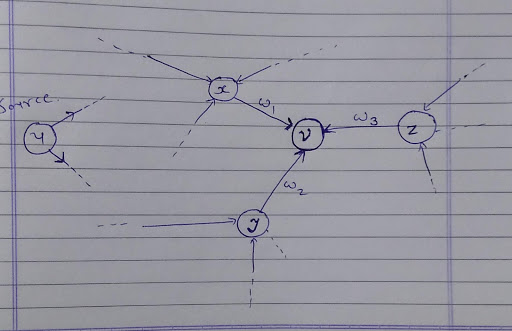 Source.
x
ω1
u
v
ω3
z
ω2
y